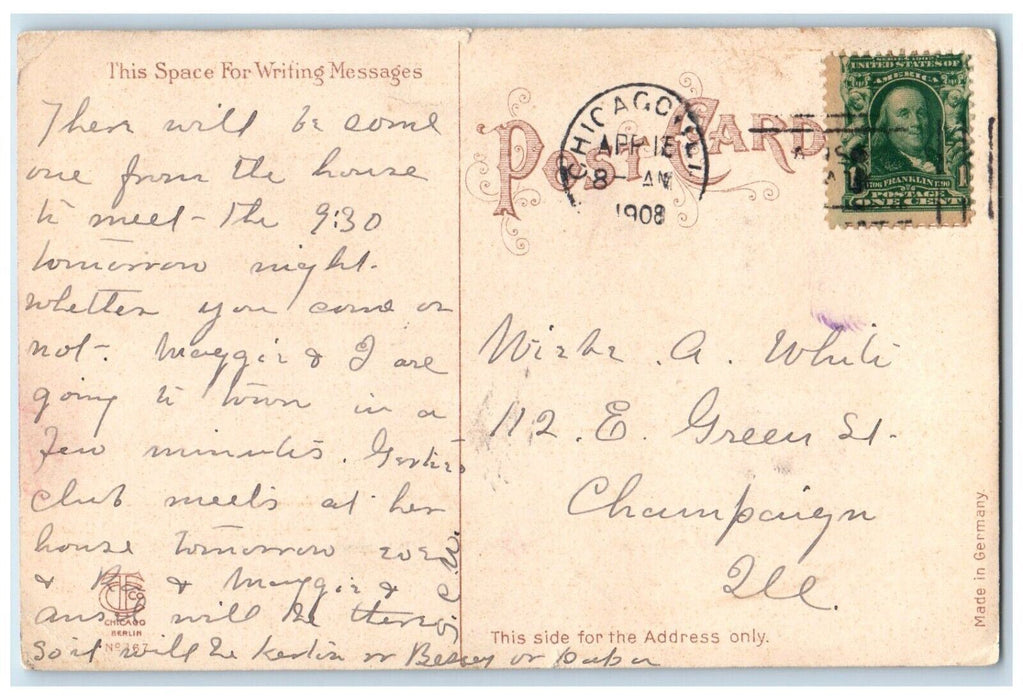 This Space For Writing Messages
There will be some
one from the house
to meet the 9:30
tomorrow night.
whether you come or
not. Maggie & I are
going to town in a
few minutes.
club meets at her
house tomorrow
& & Maggie &
will be
So it will be or or papa
CHICAGO
BERLIN
POST CARD
CHICAGO, ILL
APR
8- AM
1908
SERIES 1902
UNITED STATES OF
AMERICA
1706 FRANKLIN 90
POSTAGE
1 ONE CENT 1
A. White
112. E. Green St.
Champaign
Ill.
This side for the Address only.
Made in Germany.